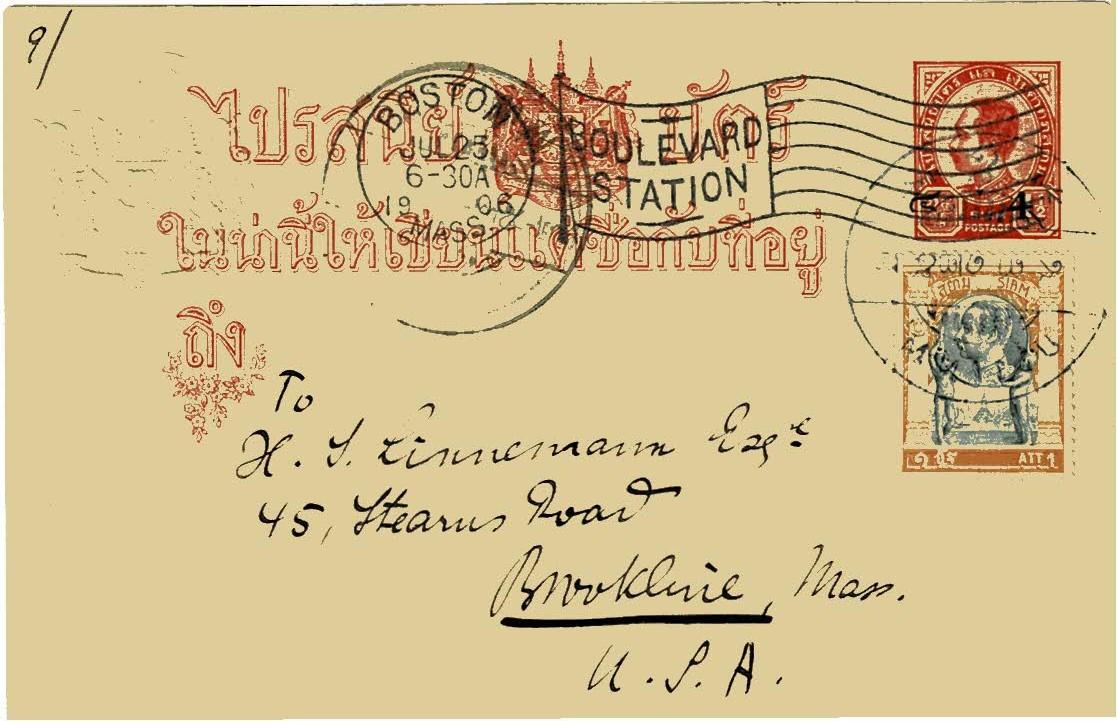 9/
ไปรสนีย์ บัตร์
BOSTON
JUL 25
6-30A
19 06
MASS.
BOULEVARD
STATION
4
POSTAGE
ในน่านี้ให้เขียนแต่ชื่อกับที่อยู่
ถึง
สยาม SIAM
ATT 1
To
H. S. Linnemann Esqr
45, Stearns Road
Brookline, Mass.
U.S.A.